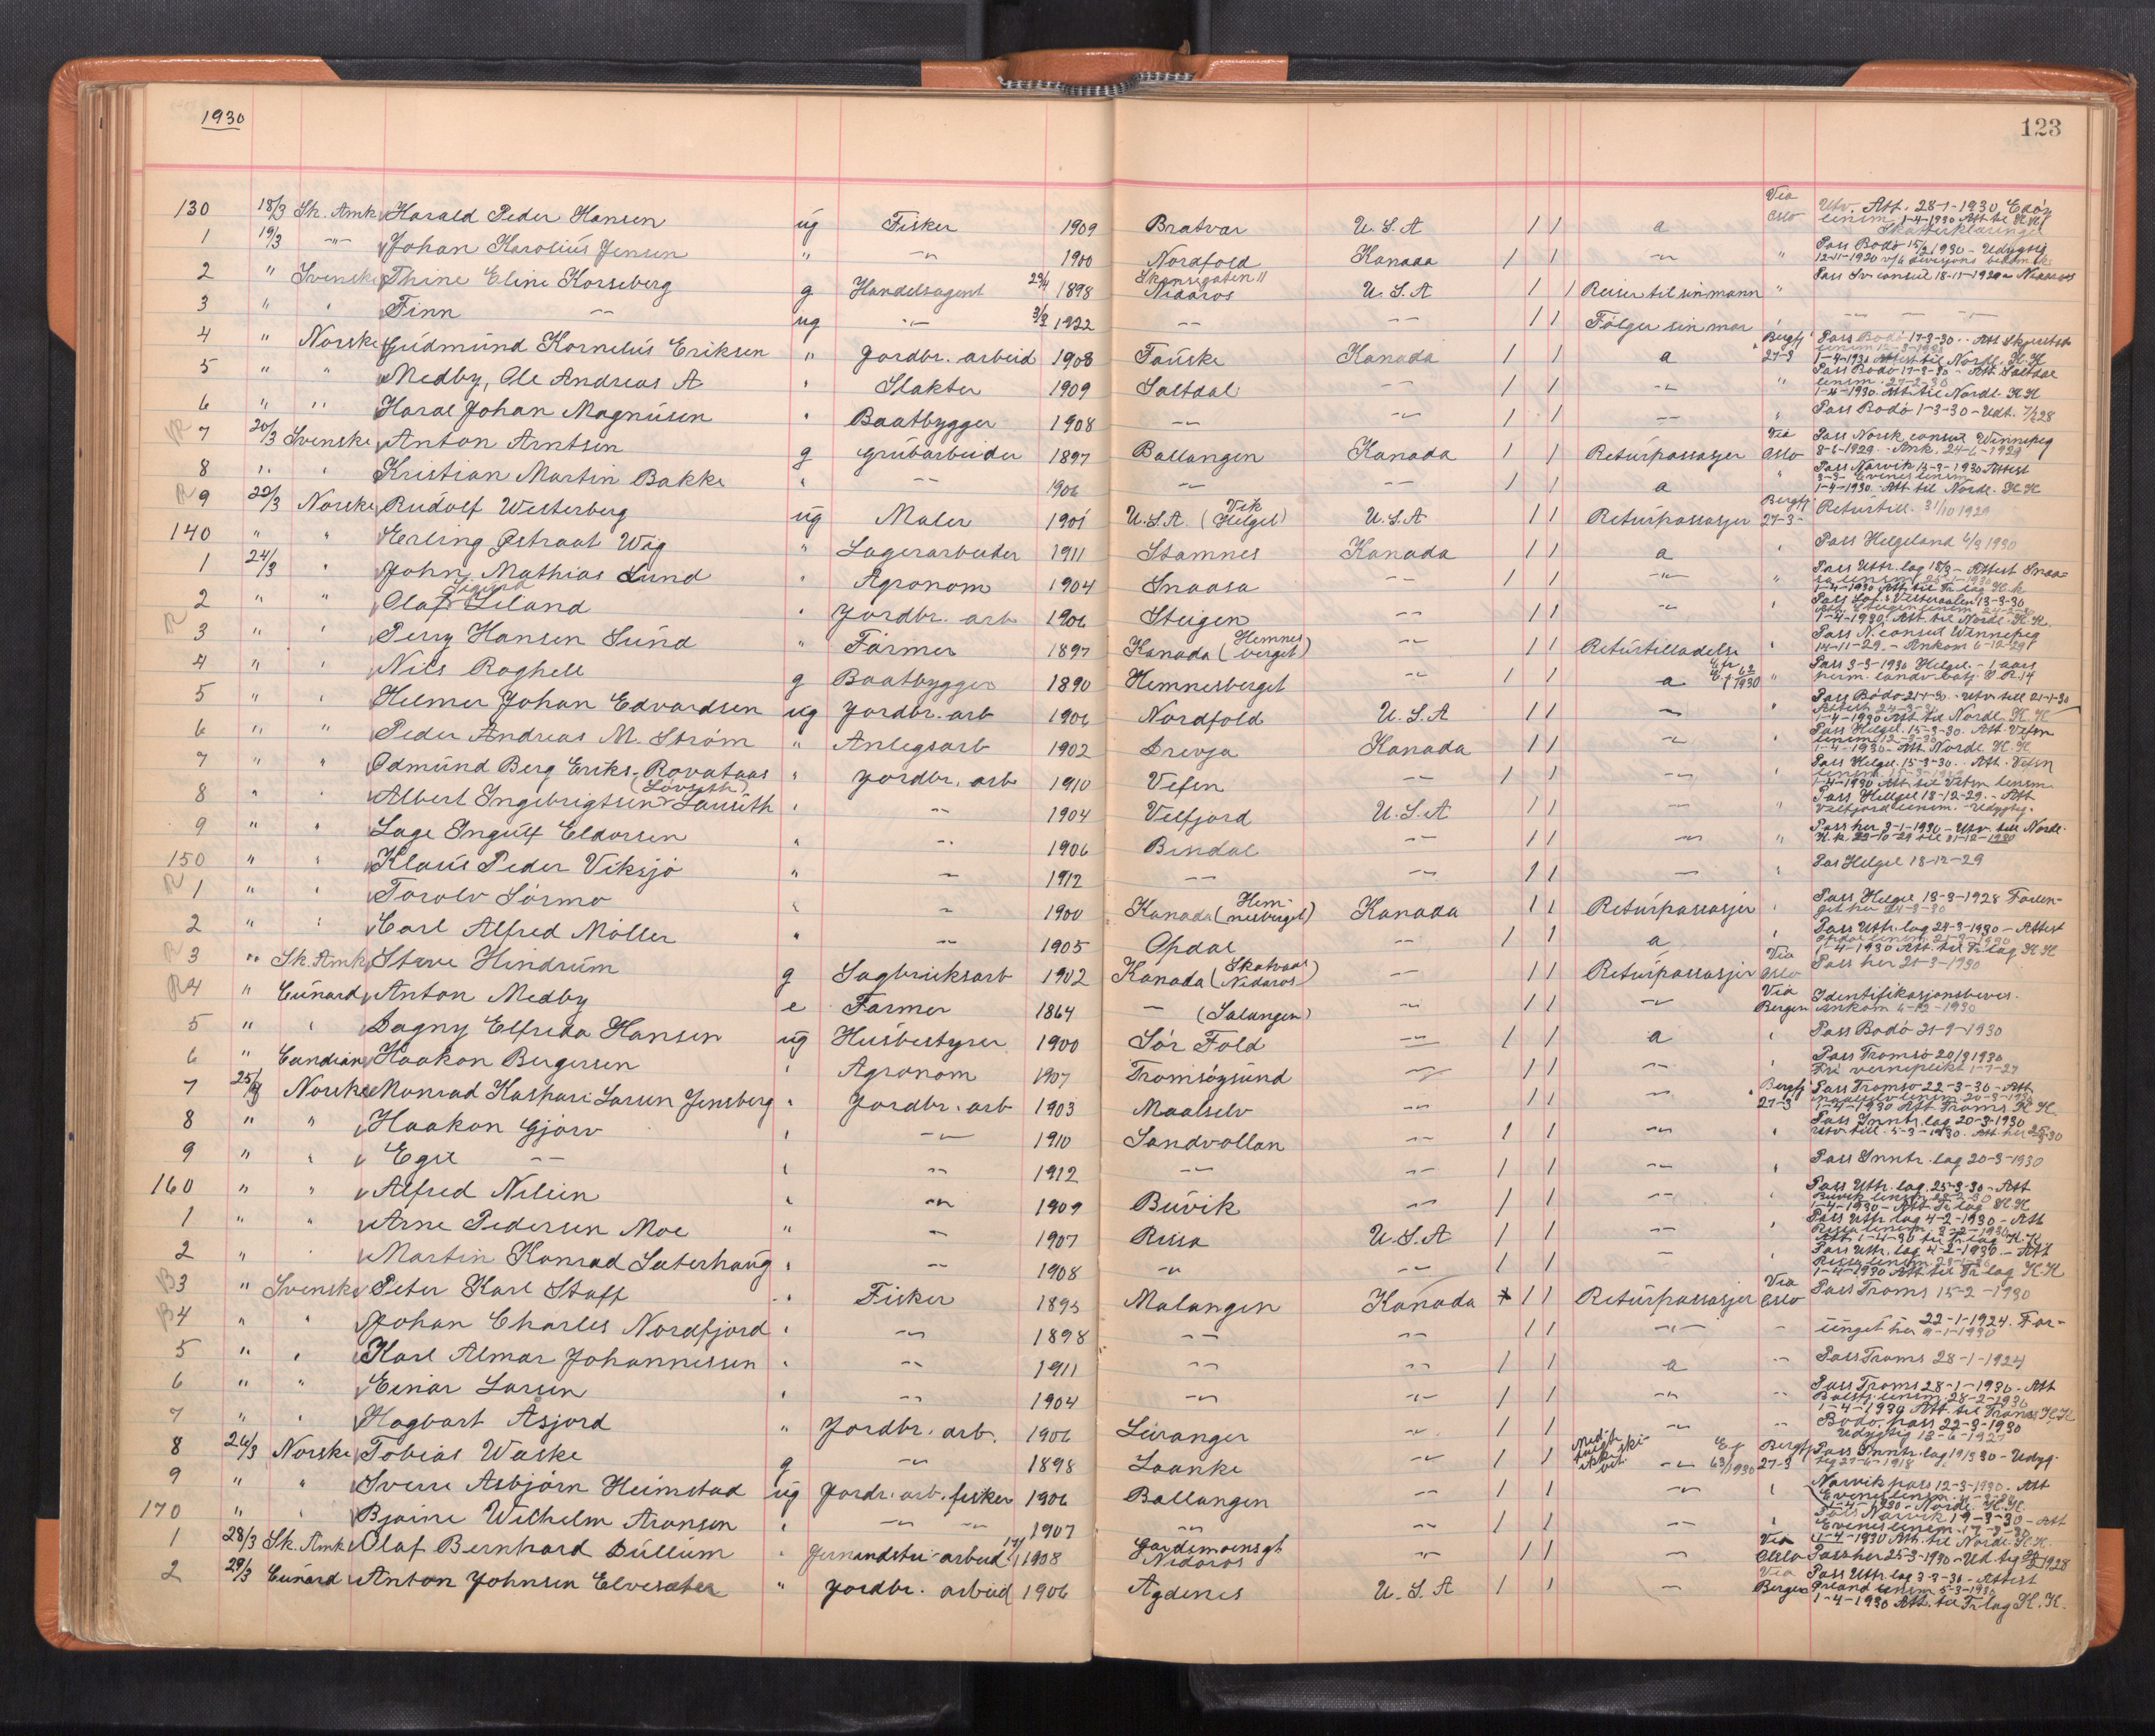 1930
123
130 18/3 Sk. Amk Harald Peder Hansen ug Fisker 1909 Bratvær U.S.A 1 1 a Via Oslo Utv. Att. 28-1-1930 Edöy lensm. 1-4-1930 Att til
1 19/3 -"- Johan Karolius Jensen " -"- 1900 Nordfold Kanada 1 1 -"- " Pass Bodö 15/2 1930 - Udygtig
2 " Svenske Thine Eline Korseberg g Handelsagent 29/4 1898 Nidaros U.S.A 1 1 Reiser til sin mann " Pass Sv. consul 18-11-1929 Nidaros
3 " " Finn -"- ug -"- 3/2 1922 -"- -"- 1 1 Følger sin mor
4 " Norske Gudmund Kornelius Eriksen " Jordbr. arbeid 1908 Fauske Kanada 1 1 a Bergfj 27-3 Pass Bodö 17-3-30 - Att Skjerstad lensm 12-3-1930 1-4-1930 Attest til Nordl. K.K
5 " " Medby, Ole Andreas A " Slakter 1909 Saltdal -"- 1 1 -"- " Pass Bodö 17-3-30 - Att. Saltdal lensm. 27-2-30 1-4-1930. Att. til Nordl. K.K
6 " " Haral Johan Magnusen " Baatbygger 1908 -"- -"- 1 1 -"- " Pass Bodö 1-3-30 - Udt.
R 7 20/3 Svenske Anton Arntsen g Grubarbeider 1897 Ballangen Kanada 1 1 Returpassasjer Via Oslo Pass Norsk consul Winnipeg 8-6-1929 - Ank. 24-6-1929
8 " " Kristian Martin Bakke " -"- 1906 -"- -"- 1 1 a " Pass Narvik 13-3-1930 Attest 3-3- Evenes lensm 1-4-1930. Att til Nordl. K.K
R 9 22/3 Norske Rudolf Westerberg ug Maler 1901 U.S.A. (Vik Helgel) U.S.A 1 1 Returpassasjer Bergfj 27-3- Returtill. 31/10 1929
140 " " Erling Østraat Wåg " Lagerarbeider 1911 Stamnes Kanada 1 1 a " Pass Helgeland 6/3 1930
1 24/3 " John Mathias Lund " Agronom 1904 Snaasa -"- 1 1 -"- " Pass Uttr. lag 18/3 - Attest Snaasa lensm 25-1-1930 1-4-1930 Att til Tr lag K.K
2 " " Olaf Sigurd Leland " Jordbr. arb 1906 Steigen -"- 1 1 -"- " Pass Lof. & Vesteraalen 13-3-30 Att Steigen lensm 1-4-1930. Att. til Nordl. K.K.
R 3 " " Perry Hansen Sund " Farmer 1897 Kanada (Hemnesberget) -"- 1 1 Returtilladelse " Pass N. consul Winnipeg 14-11-29. - Ankom 6-12-29
4 " " Nils Roghell g Baatbygger 1890 Hemnesberget -"- 1 1 a 1930 " Pass 3-3-1930 Helgel. - 1 aars perm. landv. batj. I.R.14
5 " " Helmer Johan Edvardsen ug Jordbr. arb 1906 Nordfold U.S.A 1 1 -"- " Pass Bodö 21-1-30 - Utv. till 21-1-30 1-4-1930 Att til Nordl. K.K
6 " " Peder Andreas M. Ström " Anlegsarb 1902 Drevja Kanada 1 1 -"- " Pass Helgel. 15-3-30. Att. Vefsn lensm 12-3-30 1-4-1930 - Att. Nordl. K.K
7 " " Odmund Berg Eriks. Rovataas " Jordbr. arb 1910 Vefsn -"- 1 1 -"- " Pass Helgel. 15-3-30 - Att. Vefsn 1-4-1930 Att til Vefsn lensm
8 " " Albert Ingebrigtsen Lauseth (Lövseth) " -"- 1904 Velfjord U.S.A 1 1 -"- " Pass Helgel 18-12-29. - Att Velfjord lensm. - Udygtig.
9 " " Lage Ingulf Eldorsen " -"- 1906 Bindal -"- 1 1 -"- " Pass her 3-1-1930 - Utv. till Nordl. K.K. 29-10-29 til 31-12-1930
150 " " Klaus Peder Viksjö " -"- 1912 -"- -"- 1 1 -"- " Pas Helgel 18-12-29
R 1 " " Torolv Sörmo " -"- 1900 Kanada (Hemnesberget) Kanada 1 1 Returpassasjer " Pass Helgel 13-3-1928 Forlenget her 24-3-30
2 " " Carl Alfred Möller " -"- 1905 Opdal -"- 1 1 a " Pass Uttr. lag 24-3-1930 - Attest Opdal lensm 1-4-1930 Att. til Tr lag K.K
R 3 " Sk. Amk Sterre Hindrum g Sagbruksarb 1902 Kanada (Skatvaas Nidaros) -"- 1 1 Returpassasjer Via Oslo Pass her 25-3-1930
R 4 " Cunard Anton Medby e Farmer 1864 - (Salangen) -"- 1 1 -"- Via Bergen Identifikasjonsbevis. Ankom 6-12-1930
5 " " Dagny Elfrida Hansen ug Husbestyrer 1900 Sör Fold -"- 1 1 a " Pass Bodö 21-2-1930
6 " Candian Haakon Bergersen " Agronom 1907 Tromsöysund -"- 1 1 -"- " Pass Tromsö 20/3 1930 Fri verneplikt 1-7-27
7 25/3 Norske Monrad Kaspari Larsen Jensberg " Jordbr. arb 1903 Maalselv -"- 1 1 -"- Bergfj 27-3 Pass Tromsö 22-3-30 - Att Maalselv lensm 20-3-1930 1-4-1930 Att Troms K.K.
8 " " Haakon Gjörv " -"- 1910 Sandvollan -"- 1 1 -"- " Pass Inntr. lag 20-3-1930 Utv till. 5-3-1930. Att her 25-3-30
9 " " Egil -"- " -"- 1912 -"- -"- 1 1 -"- " Pass Inntr. lag 20-3-1930
160 " " Alfred Nilsen " -"- 1909 Buvik -"- 1 1 -"- " Pass Uttr. lag. 25-3-30 - Att Buvik lensm 1-4-1930 - Att Tr lag K.K
1 " " Arne Pedersen Moe " -"- 1907 Rissa U.S.A 1 1 -"- " Pass Uttr lag 4-2-1930 - Att Rissa lensm. 3-2-1930 Att 1-4-30 til Tr lag K.K
2 " " Martin Konrad Seterhaug " -"- 1908 -"- -"- 1 1 - " Pass Uttr. lag 4-2-1930 - Att Rissa lensm 1-4-1930 Att til Tr lag K.K
R 3 " Svenske Peter Karl Stoft " Fisker 1895 Malangen Kanada 1 1 Returpassasjer Via Oslo Pass Troms 15-2-1930
R 4 " " Johan Charles Nordfjord " -"- 1898 -"- -"- 1 1 -"- - 22-1-1924. Forlenget her 9-1-1930
5 " " Karl Almar Johannessen " -"- 1911 -"- -"- 1 1 a -"- Pass Troms 28-1-1924
6 " " Einar Larsen " -"- 1904 -"- -"- 1 1 -"- -"- Pass Troms 28-1-1930 - Att Balsfj. lensm. 28-2-1930 1-4-1930 Att. til Troms K.K
7 " " Hagbart Åsjord " Jordbr. arb. 1906 Leiranger -"- 1 1 -"- -"- Bodö. pass 22-3-1930 Udygtig 13-6-1927
8 26/3 Norske Tobias Waske g -"- 1898 Laanke -"- 1 1 -"- 63/1930 Bergfj 27-3 Pass Inntr. lag 19/3 30 - Udygtig 27-6-1918
9 " " Sverre Asbjörn Heimstad ug Jordr. arb. fisker 1906 Ballangen -"- 1 1 -"- " Narvik pass 12-3-1930. Att Evenes lensm. 1-4-1930 - Nordl. K.K.
170 " " Bjarne Wilhelm Aronsen " -"- -"- 1907 -"- -"- 1 1 -"- " Pass Narvik 19-3-30 - Att Evenes lensm. 17-3-30 1-4-1930 Att. til Nordl K.K.
1 28/3 Sk. Amk Olaf Bernhard Dullum " Jernindstri-arbeid 1908 Gardemoensgt Nidaros -"- 1 1 -"- Via Oslo Pass her 25-3-1930 - Ud. tig 1928
2 29/3 Cunard Anton Johnsen Elvesæter " Jordbr. arbeid 1906 Agdenes U.S.A 1 1 -"- Via Bergen Pass Uttr. lag 3-3-30 - Attest Ørland lensm 5-3-1930 1-4-1930 Att. til Tr lag K.K.